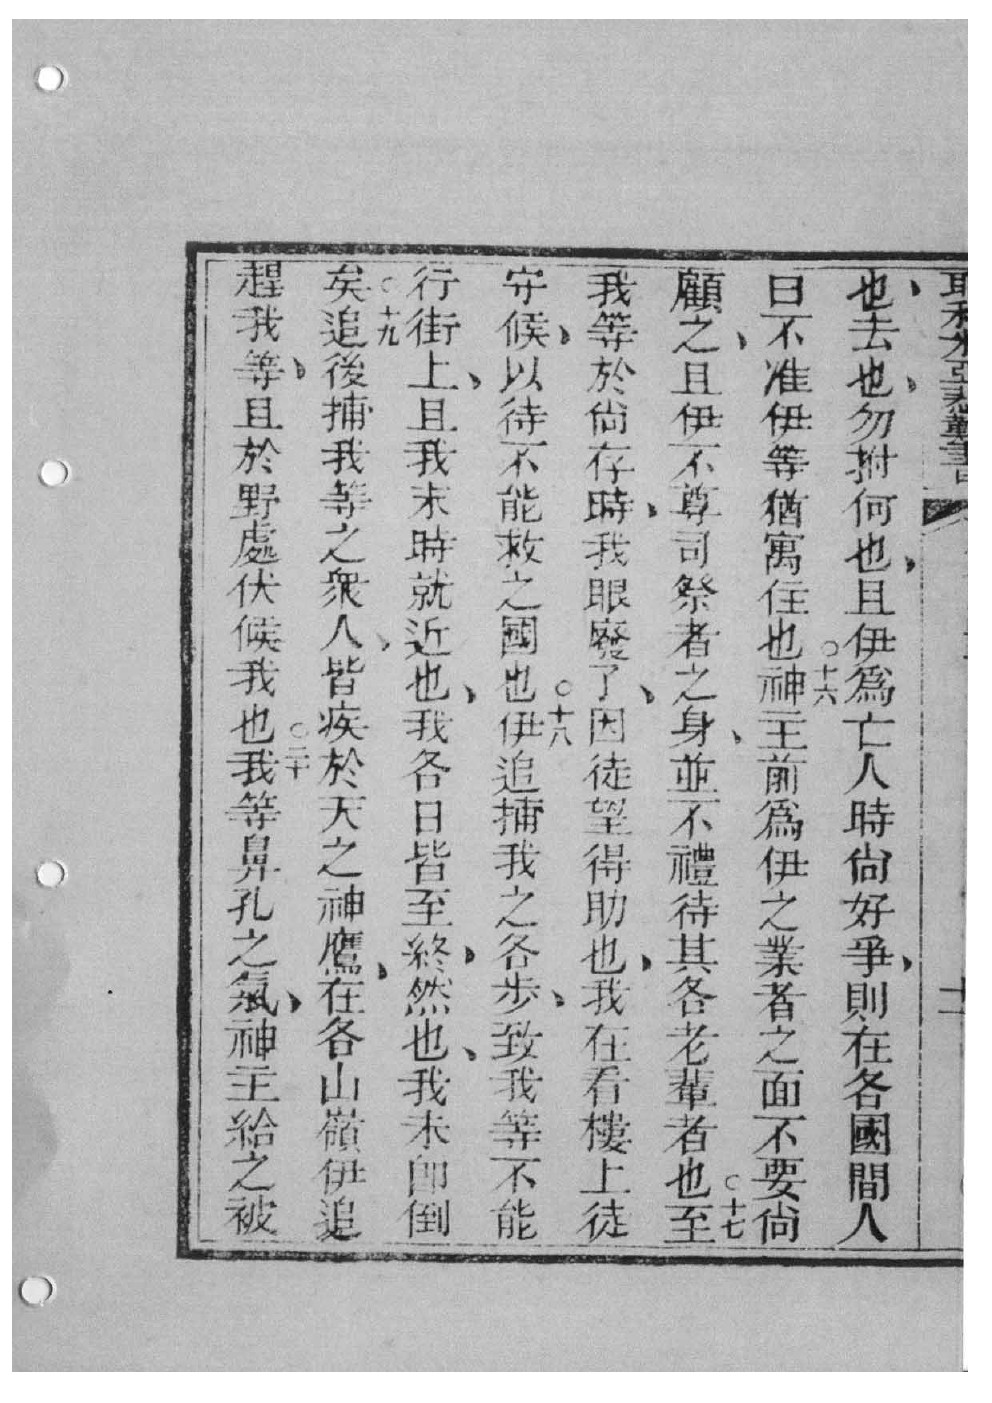 耶利米亞悲歎書
也、去也、勿拊何也、且伊爲亡人時尙好爭、則在各國間人
曰不准伊等猶寓住也○十六神主前爲伊之業者之面不要尙
顧之、且伊不尊司祭者之身、並不禮待其各老輩者也○十七至
我等於尙存時、我眼廢了、因徒望得助也、我在看樓上徒
守候、以待不能救之國也○十八伊追捕我之各步、致我等不能
行街上、且我末時就近也、我各日皆至終、然也、我末卽倒
矣○十九追後捕我等之衆人、皆疾於天之神鷹、在各山嶺伊追
趕我等、且於野處伏候我也○二十我等鼻孔之氣、神主給之被